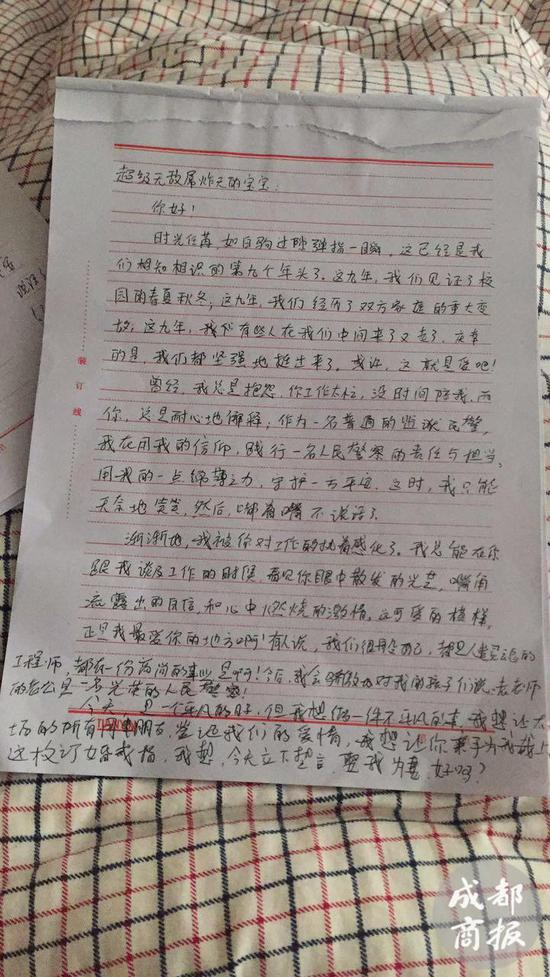 超级无敌屌炸天的宝宝：
你好！
时光荏苒，如白驹过隙弹指一瞬，这已经是我
们相知相识的第九个年头了。这九年，我们见证了校
园的春夏秋冬；这九年，我们经历了双方家庭的重大变
故；这九年，我们有些人在我们中间来了又走了，庆幸
的是，我们都坚强地挺过来了。或许，这就是爱吧！
曾经，我总是抱怨，你工作太忙，没时间陪我，而
你，总是耐心地解释，作为一名普通的监狱民警，
我在用我的信仰，践行一名人民警察的责任与担当，
用我的一点绵薄之力，守护一方平安，这时，我只能
无奈地笑笑，然后，嘟着嘴不说话了。
渐渐地，我被你对工作的执着感化了。我总能在你
跟我谈及工作的时候，看见你眼中散发的光芒，嘴角
流露出的自信，和心中燃烧的激情，这可爱的模样，
正是我最爱你的地方啊！有人说，我们很般配，都是人类灵魂的
工程师，都在一份高尚的事业
的老公是一名光荣的人民警察！
今天，是一个平凡的日子，但我想做一件不平凡的事，我想让在
场的所有朋友，见证我们的爱情，我想让你亲手为我戴上
这枚订婚戒指，我想，今天立下誓言，娶我为妻，好吗？
装
订
线
成都
商报